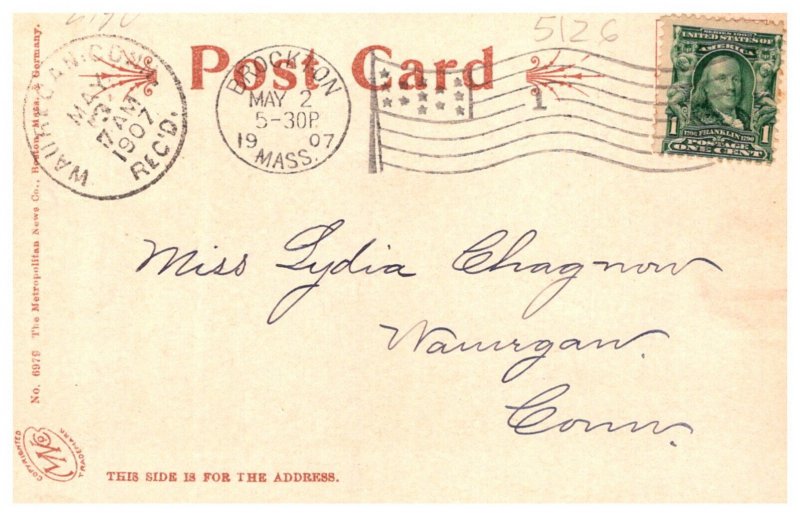 5126
Post Card
WAUREGAN. CONN.
MAY
3
7 AM
1907
REC'D.
BROCKTON
MAY 2
5-30P
1907
MASS.
1
SERIES 1902
UNITED STATES OF
AMERICA
1706 FRANKLIN 1790
1 POSTAGE 1
ONE CENT
Miss Lydia Chagnow
Waurgan.
Conn.
No. 6979 The Metropolitan News Co., Boston, Mass. & Germany.
COPYRIGHTED
TRADEMARK
THIS SIDE IS FOR THE ADDRESS.